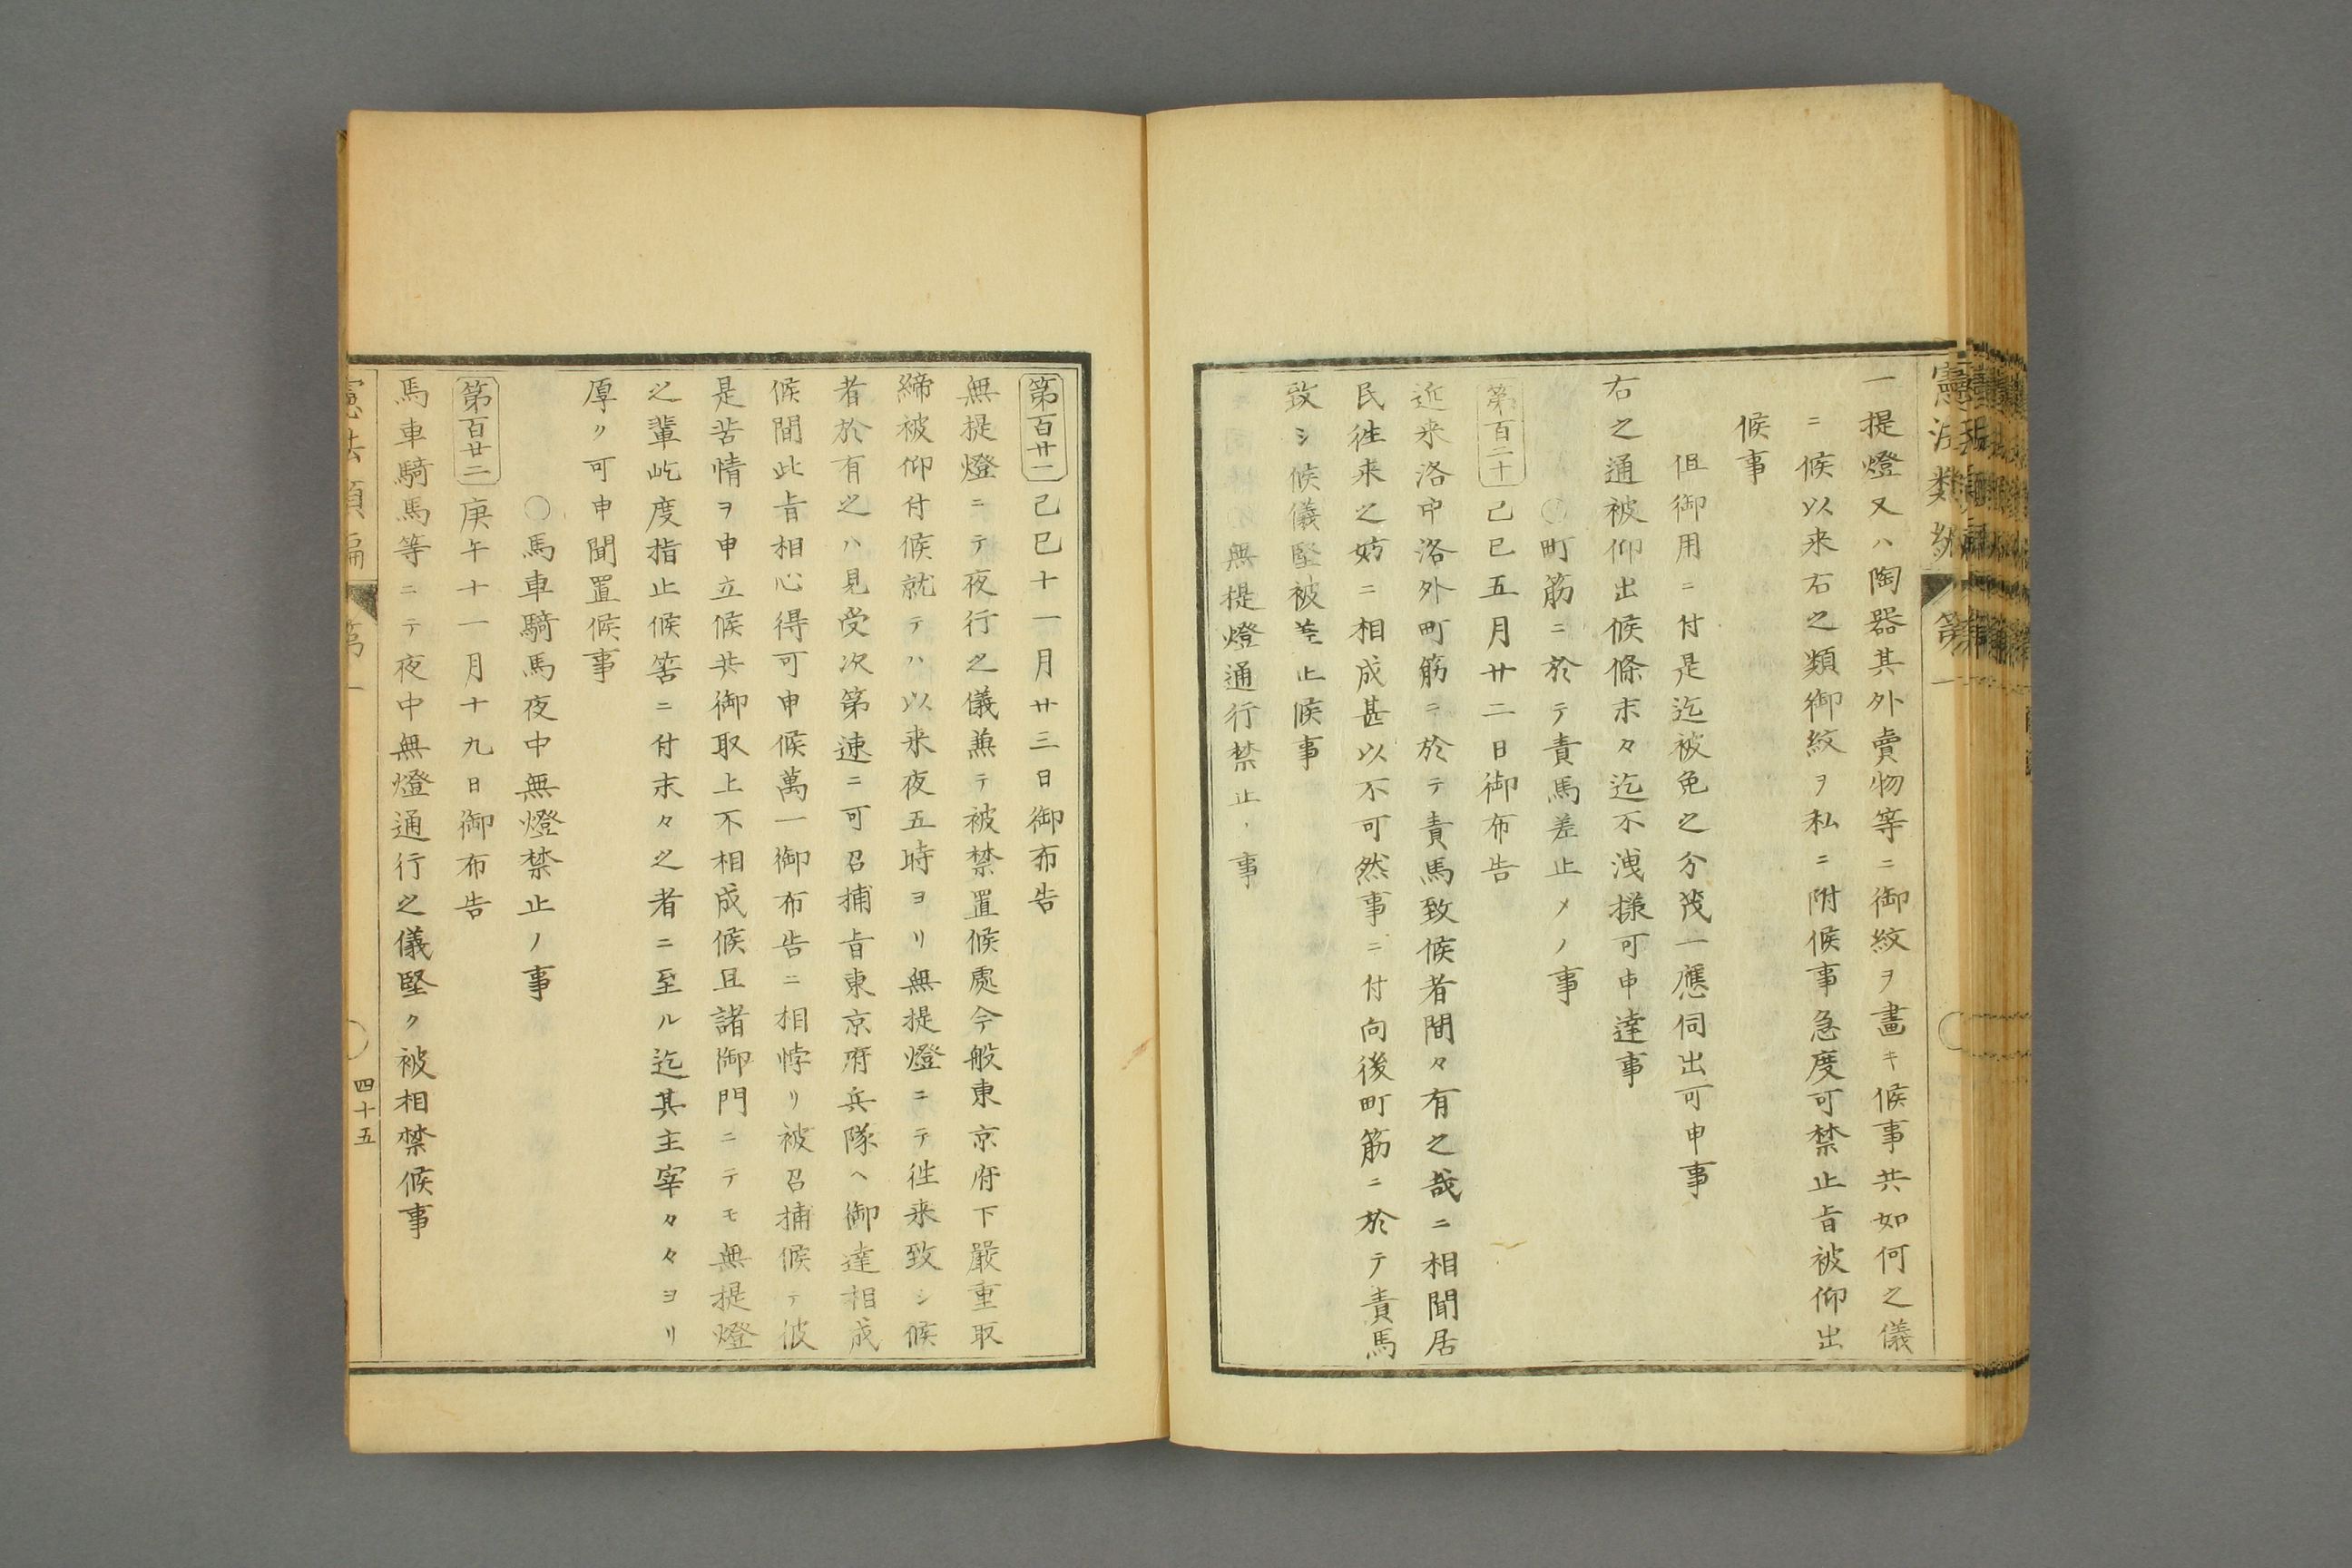 一提燈又ハ陶器其外賣物等ニ御紋ヲ畫キ候事共如何之儀
ニ候以来右之類御紋ヲ私ニ附候事急度可禁止旨被仰出
候事
但御用ニ付是迄被免之分茂一應伺出可申事
右之通被仰出候條末々迄不洩様可申達事
〇町筋ニ於テ責馬差止メノ事
第百二十 己巳五月廿二日御布告
近来洛中洛外町筋ニ於テ責馬致候者間々有之哉ニ相聞居
民徃来之妨ニ相成甚以不可然事ニ付向後町筋ニ於テ責馬
致シ候儀堅被差止候事
無提燈通行禁止ノ事
第百廿一 己巳十一月廿三日御布告
無提燈ニテ夜行之儀兼テ被禁置候處今般東京府下嚴重取
締被仰付候就テハ以来夜五時ヨリ無提燈ニテ徃来致シ候
者於有之ハ見受次第速ニ可召捕旨東京府兵隊ヘ御達相成
候間此旨相心得可申候萬一御布告ニ相悖リ被召捕候テ彼
是苦情ヲ申立候共御取上不相成候且諸御門ニテモ無提燈
之輩屹度指止候筈ニ付末々之者ニ至ル迄其主宰々々ヨリ
厚ク可申聞置候事
〇馬車騎馬夜中無燈禁止ノ事
第百廿二 庚午十一月十九日御布告
馬車騎馬等ニテ夜中無燈通行之儀堅ク被相禁候事
憲法類編 第一 四十五